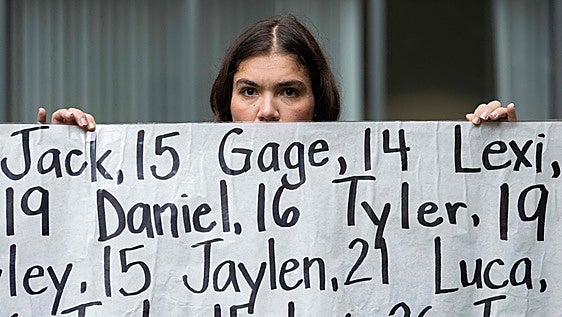 Jack, 15 Gage, 14 Lexi,
19 Daniel, 16 Tyler, 19
15 Jaylen, 21 Luca,